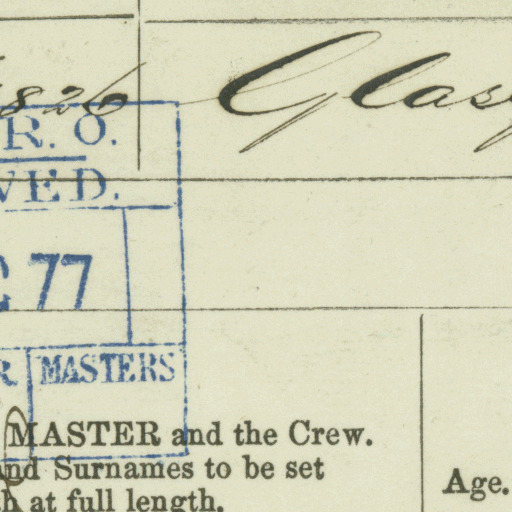 826 Glas
R. O.
VED.
77
R MASTERS
MASTER and the Crew.
and Surnames to be set
Age.
th at full length.